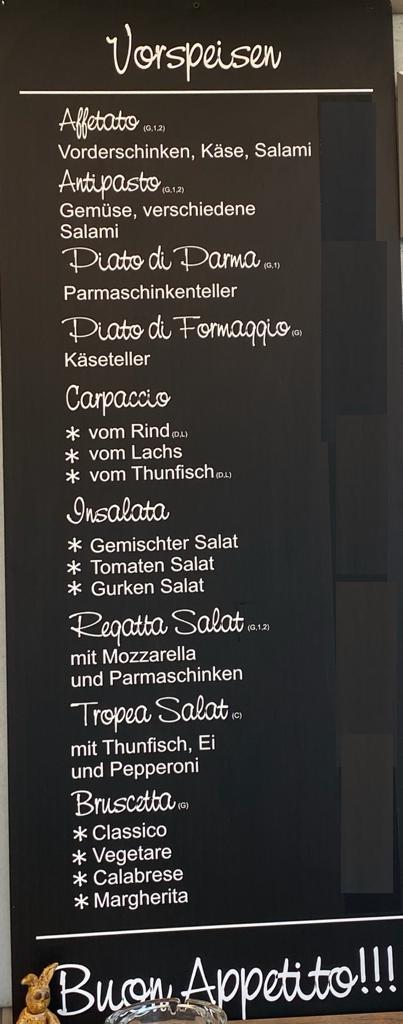 Vorspeisen
Affetato (G,1,2)
Vorderschinken, Käse, Salami
Antipasto (G,1,2)
Gemüse, verschiedene
Salami
Piato di Parma (G,1)
Parmaschinkenteller
Piato di Formaggio (G)
Käseteller
Carpaccio
* vom Rind (D,L)
* vom Lachs
* vom Thunfisch (D,L)
Insalata
* Gemischter Salat
* Tomaten Salat
* Gurken Salat
Regatta Salat (G,1,2)
mit Mozzarella
und Parmaschinken
Tropea Salat (C)
mit Thunfisch, Ei
und Pepperoni
Bruscetta (G)
* Classico
* Vegetare
* Calabrese
* Margherita
Buon Appetito!!!